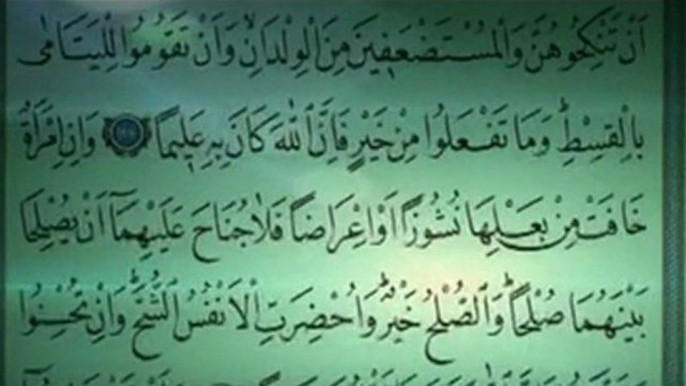 اَنْ تَنْكِحُوهُنَّ وَالْمُسْتَضْعَفٖينَ مِنَ الْوِلْدَانِۙ وَاَنْ تَقُومُوا لِلْيَتَامٰى
بِالْقِسْطِۜ وَمَا تَفْعَلُوا مِنْ خَيْرٍ فَاِنَّ اللّٰهَ كَانَ بِهٖ عَلٖيمًا ﴿١٢٧﴾ وَاِنِ امْرَاَةٌ
خَافَتْ مِنْ بَعْلِهَا نُشُوزًا اَوْ اِعْرَاضًا فَلَا جُنَاحَ عَلَيْهِمَٓا اَنْ يُصْلِحَا
بَيْنَهُمَا صُلْحًاۜ وَالصُّلْحُ خَيْرٌۜ وَاُحْضِرَتِ الْاَنْفُسُ الشُّحَّۜ وَاِنْ تُحْسِنُوا